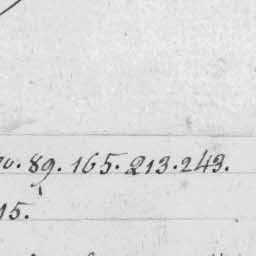 89. 165. 213. 243.
15.